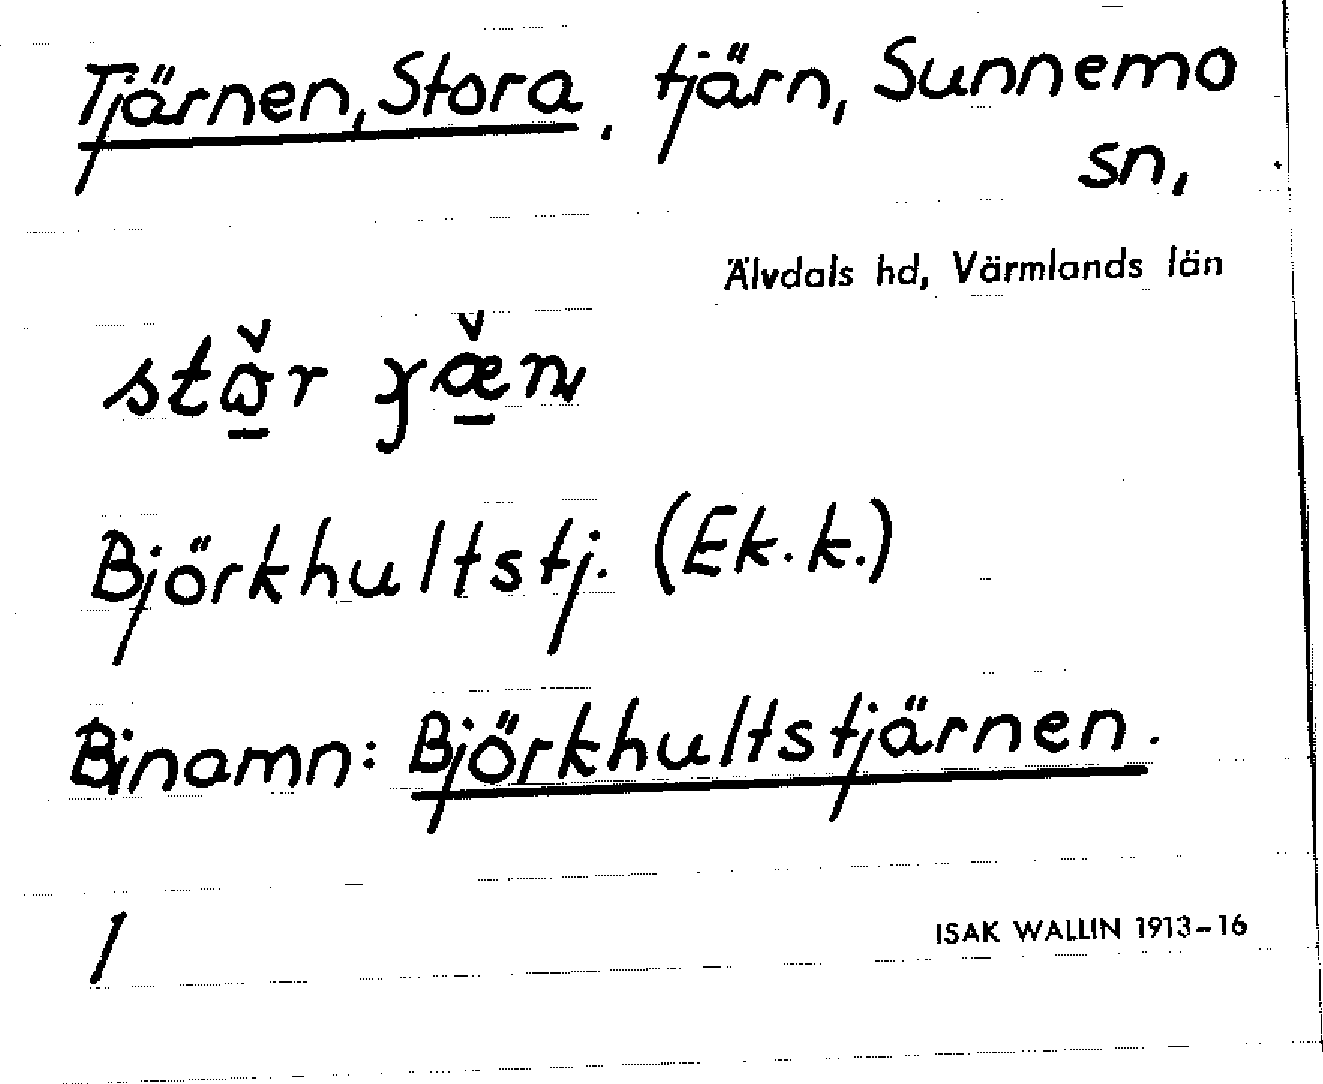 Tjärnen, Stora, tjärn, Sunnemo
sn,
Älvdals hd, Värmlands län
Björkhultstj. (Ek. k.)
Binamn: Björkhultstjärnen.
1
ISAK WALLIN 1913-16